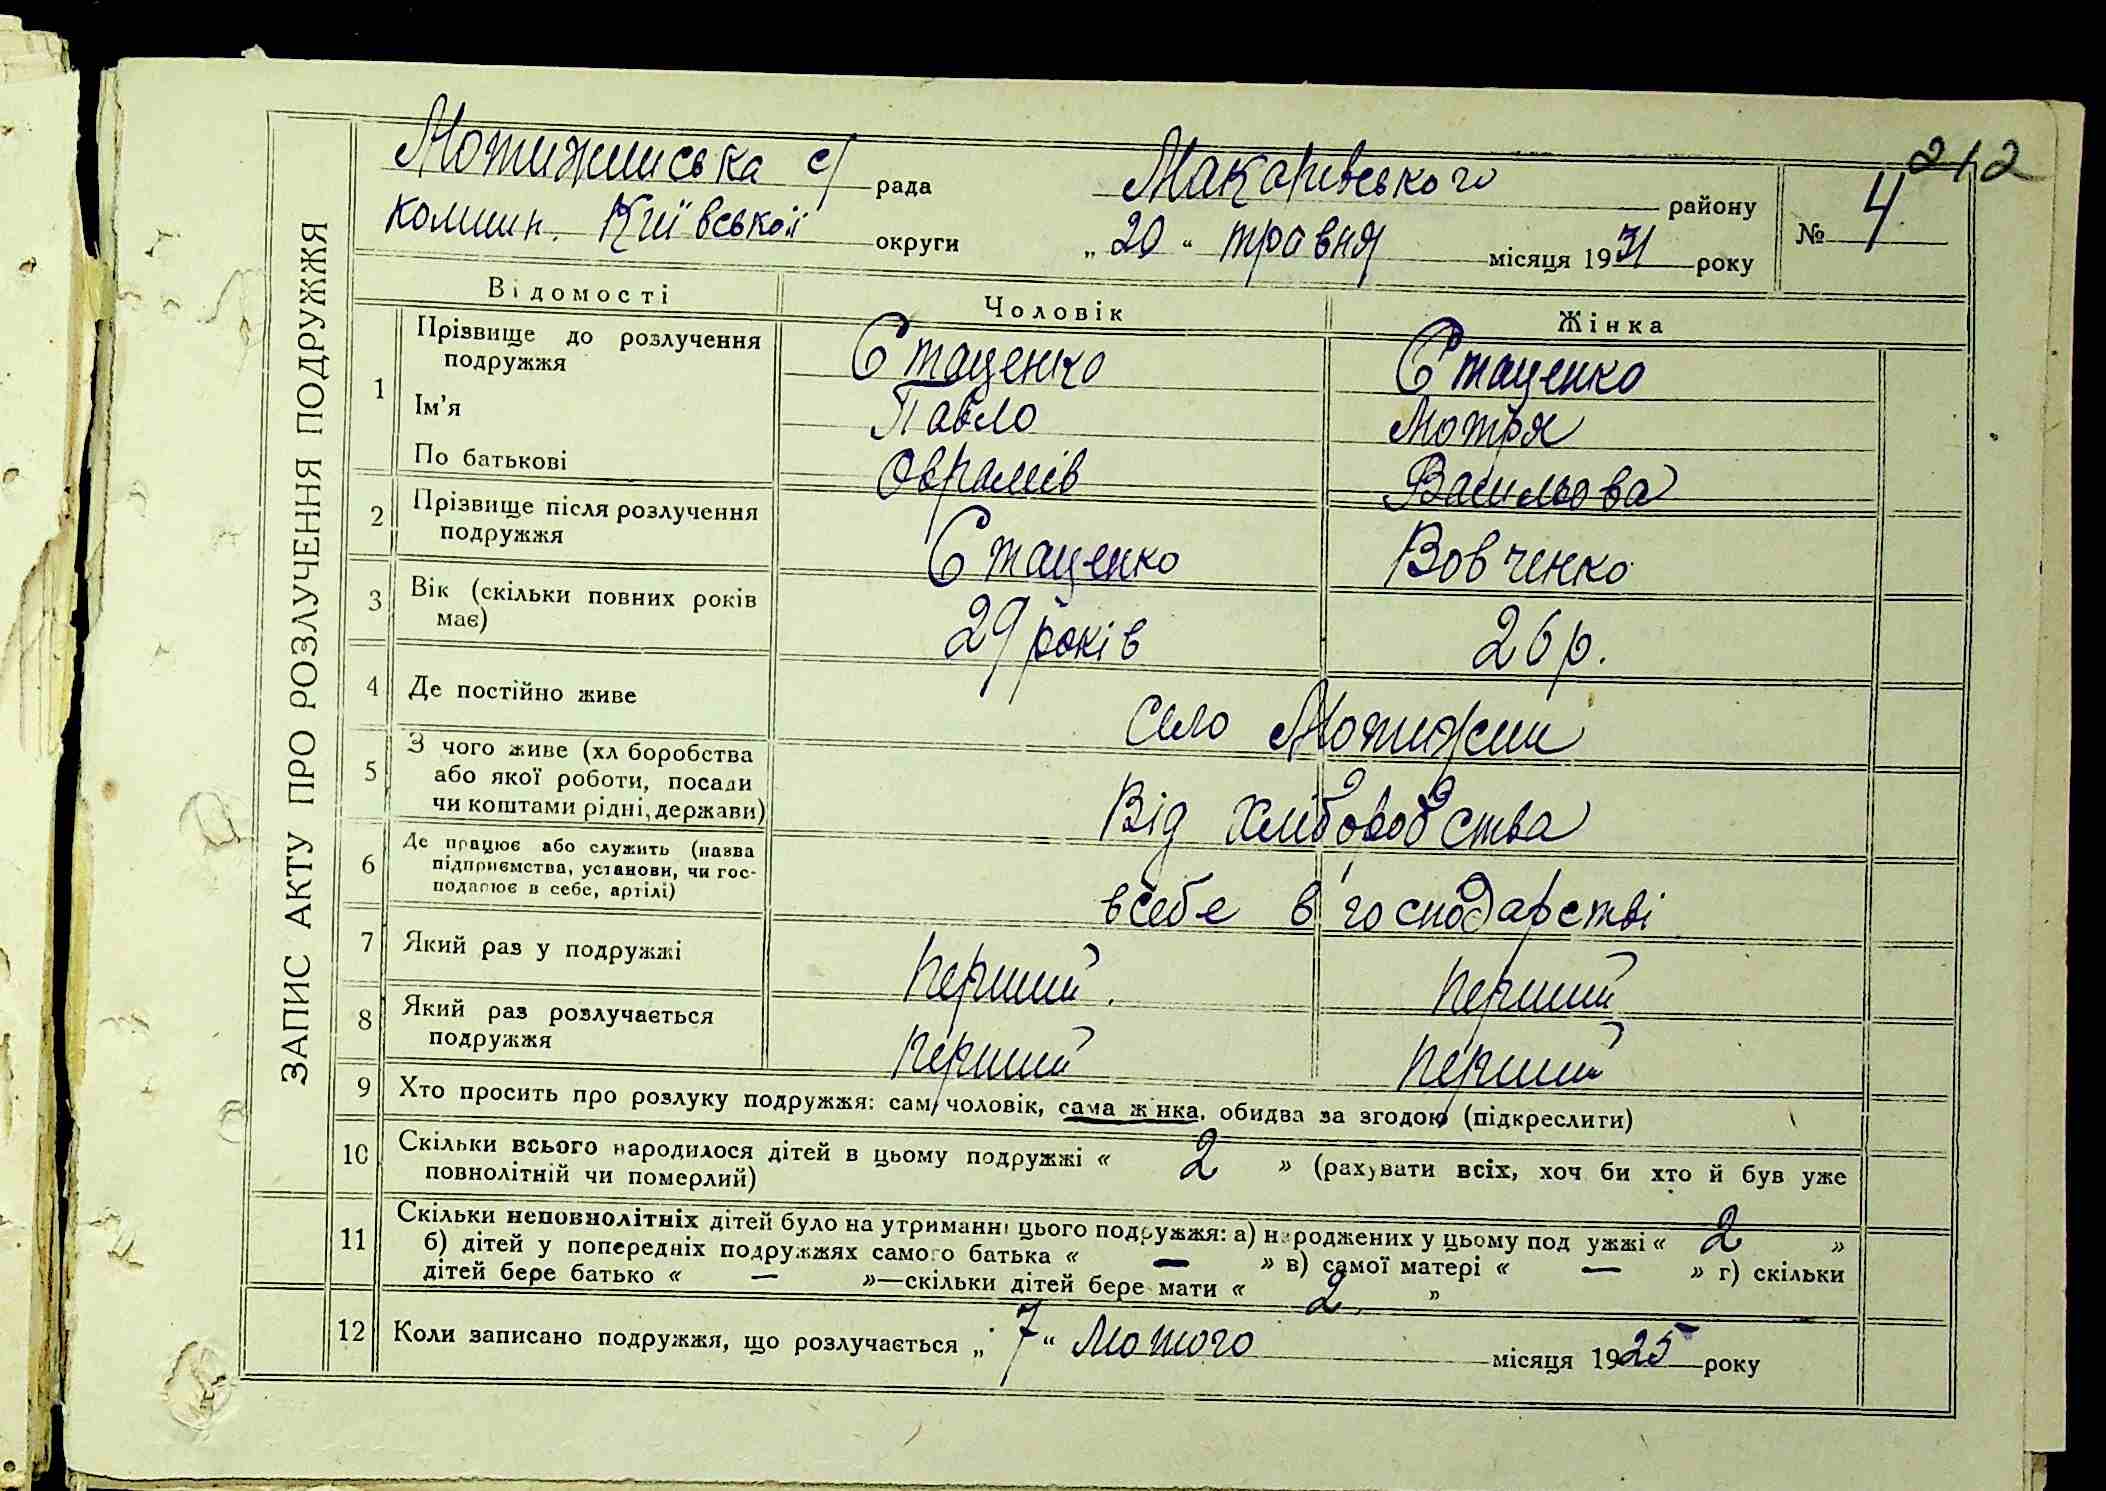 212
ЗАПИС АКТУ ПРО РОЗЛУЧЕННЯ ПОДРУЖЖЯ
Мотижинська с/ рада Макарівського району № 4
колишн. Київської округи „ 20 “ травня місяця 1931 року
Відомості Чоловік Жінка
1 Прізвище до розлучення подружжя Стаценко Стаценко
Ім'я Павло Мотря
По батькові Оврамів Васильова
2 Прізвище після розлучення подружжя Стаценко Вовченко
3 Вік (скільки повних років має) 29 років 26 р.
4 Де постійно живе село Мотижин
5 З чого живе (хл боробства
або якої роботи, посади
чи коштами рідні, держави) Від хліборобства
6 Де працює або служить (назва
підприємства, установи, чи гос-
подарює в себе, артілі) всебе в господарстві
7 Який раз у подружжі перший. перший
8 Який раз розлучається подружжя перший перший
9 Хто просить про розлуку подружжя: сам чоловік, сама жінка, обидва за згодою (підкреслити)
10 Скільки всього народилося дітей в цьому подружжі « 2 » (рахувати всіх, хоч би хто й був уже
повнолітній чи померлий)
11 Скільки неповнолітніх дітей було на утриманні цього подружжя: а) народжених у цьому под ужжі « 2 »
б) дітей у попередніх подружжях самого батька « — » в) самої матері « — » г) скільки
дітей бере батько « — »—скільки дітей бере мати « 2. »
12 Коли записано подружжя, що розлучається „ 7 “ Лютого місяця 1925 року